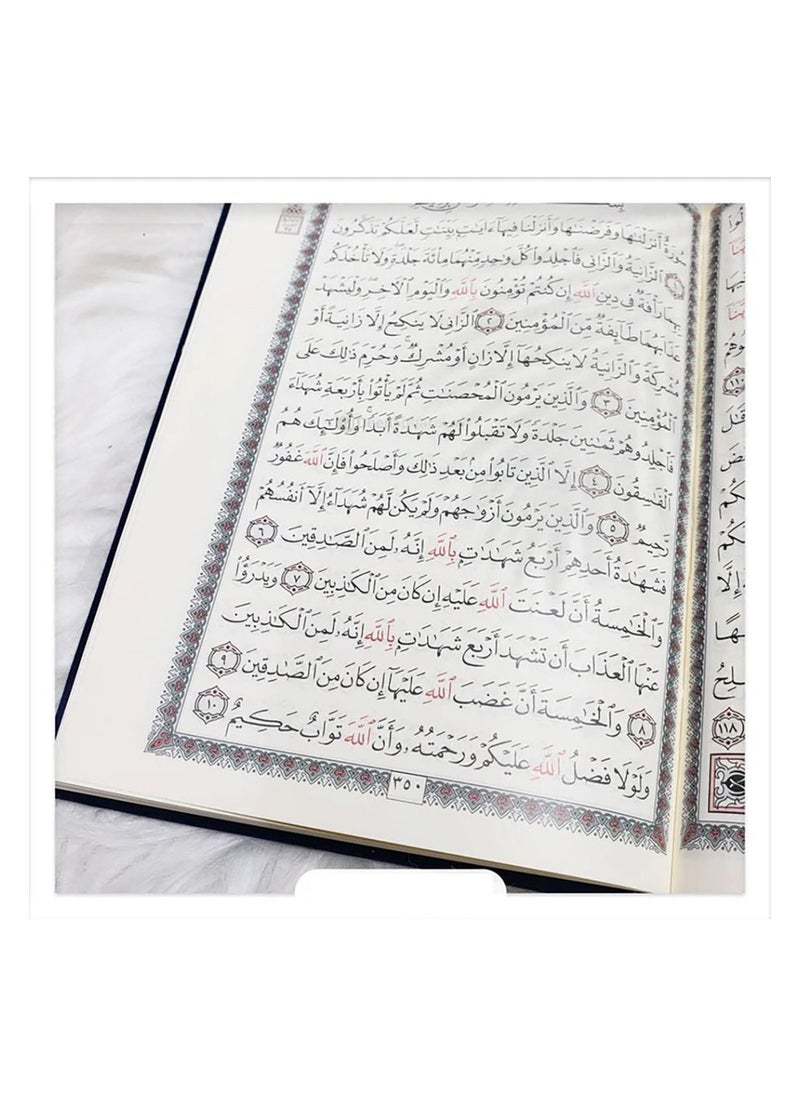 سُورَةٌ أَنزَلْنَٰهَا وَفَرَضْنَٰهَا وَأَنزَلْنَا فِيهَآ ءَايَٰتٍۭ بَيِّنَٰتٍ لَّعَلَّكُمْ تَذَكَّرُونَ
۝١ ٱلزَّانِيَةُ وَٱلزَّانِى فَٱجْلِدُوا۟ كُلَّ وَٰحِدٍ مِّنْهُمَا مِا۟ئَةَ جَلْدَةٍ وَلَا تَأْخُذْكُم
بِهِمَا رَأْفَةٌ فِى دِينِ ٱللَّهِ إِن كُنتُمْ تُؤْمِنُونَ بِٱللَّهِ وَٱلْيَوْمِ ٱلْءَاخِرِ وَلْيَشْهَدْ
عَذَابَهُمَا طَآئِفَةٌ مِّنَ ٱلْمُؤْمِنِينَ ۝٢ ٱلزَّانِى لَا يَنكِحُ إِلَّا زَانِيَةً أَوْ
مُشْرِكَةً وَٱلزَّانِيَةُ لَا يَنكِحُهَآ إِلَّا زَانٍ أَوْ مُشْرِكٌ وَحُرِّمَ ذَٰلِكَ عَلَى
ٱلْمُؤْمِنِينَ ۝٣ وَٱلَّذِينَ يَرْمُونَ ٱلْمُحْصَنَٰتِ ثُمَّ لَمْ يَأْتُوا۟ بِأَرْبَعَةِ شُهَدَآءَ
فَٱجْلِدُوهُمْ ثَمَٰنِينَ جَلْدَةً وَلَا تَقْبَلُوا۟ لَهُمْ شَهَٰدَةً أَبَدًا وَأُو۟لَٰٓئِكَ هُمُ
ٱلْفَٰسِقُونَ ۝٤ إِلَّا ٱلَّذِينَ تَابُوا۟ مِنۢ بَعْدِ ذَٰلِكَ وَأَصْلَحُوا۟ فَإِنَّ ٱللَّهَ غَفُورٌ
رَّحِيمٌ ۝٥ وَٱلَّذِينَ يَرْمُونَ أَزْوَٰجَهُمْ وَلَمْ يَكُن لَّهُمْ شُهَدَآءُ إِلَّآ أَنفُسُهُمْ
فَشَهَٰدَةُ أَحَدِهِمْ أَرْبَعُ شَهَٰدَٰتٍۭ بِٱللَّهِ إِنَّهُۥ لَمِنَ ٱلصَّٰدِقِينَ ۝٦
وَٱلْخَٰمِسَةُ أَنَّ لَعْنَتَ ٱللَّهِ عَلَيْهِ إِن كَانَ مِنَ ٱلْكَٰذِبِينَ ۝٧ وَيَدْرَؤُا۟
عَنْهَا ٱلْعَذَابَ أَن تَشْهَدَ أَرْبَعَ شَهَٰدَٰتٍۭ بِٱللَّهِ إِنَّهُۥ لَمِنَ ٱلْكَٰذِبِينَ
۝٨ وَٱلْخَٰمِسَةَ أَنَّ غَضَبَ ٱللَّهِ عَلَيْهَآ إِن كَانَ مِنَ ٱلصَّٰدِقِينَ ۝٩
وَلَوْلَا فَضْلُ ٱللَّهِ عَلَيْكُمْ وَرَحْمَتُهُۥ وَأَنَّ ٱللَّهَ تَوَّابٌ حَكِيمٌ ۝١٠
٣٥٠
١١٨